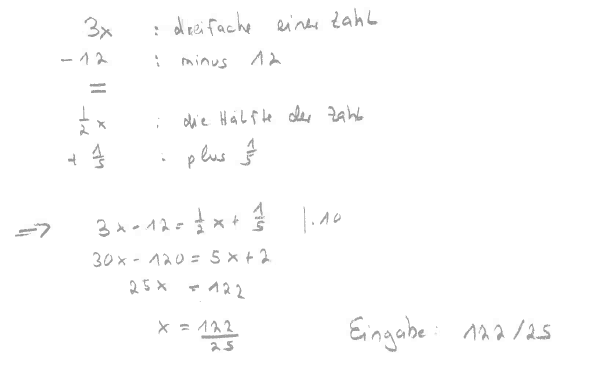 3x : dreifache einer Zahl
- 12 : minus 12
=
1/2 x : die Hälfte der Zahl
+ 1/5 : plus 1/5
=> 3x - 12 = 1/2 x + 1/5 | · 10
30x - 120 = 5x + 2
25x = 122
x = 122/25 Eingabe: 122/25